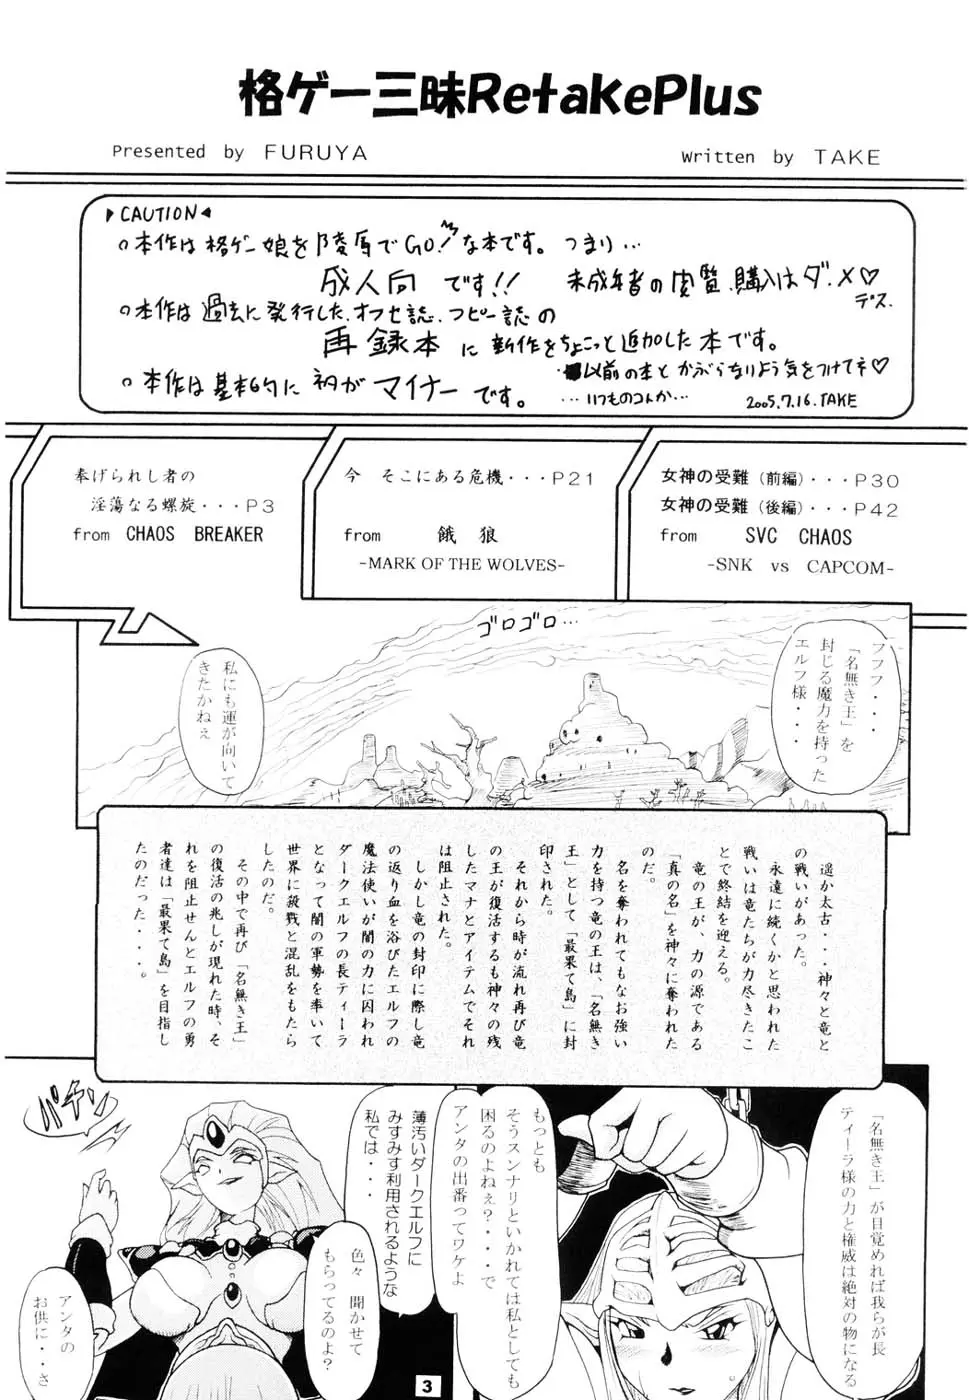 格ゲー三昧RetakePlus
Presented by FURUYA
Written by TAKE
▶CAUTION◀
○本作は格ゲー娘を陵辱でGO!な本です。つまり…
成人向です!! 未成年者の閲覧、購入はダ.メ♡
デス.
○本作は過去に発行したオフセ誌、コピー誌の
再録本に新作をちょこっと追加した本です。
以前の本とかぶらなりよう気をつけてネ♡
○本作は基本的にネタがマイナーです。
…いつものコんか…
2005.7.16.TAKE
奉げられし者の
淫蕩なる螺旋・・・P3
from CHAOS BREAKER
今 そこにある危機・・・P21
from 餓狼
-MARK OF THE WOLVES-
女神の受難(前編)・・・P30
女神の受難(後編)・・・P42
from SVC CHAOS
-SNK vs CAPCOM-
ゴロゴロ…
フフフ・・・
「名無き王」を
封じる魔力を持った
エルフ様・・・
私にも運が向いて
きたかねぇ
遥か太古・・・神々と竜と
の戦いがあった。
永遠に続くかと思われた
戦いは竜たちが力尽きたこ
とで終結を迎える。
竜の王が、力の源である
「真の名」を神々に奪われた
のだ。
名を奪われてもなお強い
力を持つ竜の王は、「名無き
王」として「最果て島」に封
印された。
それから時が流れ再び竜
の王が復活するも神々の残
したマナとアイテムでそれ
は阻止された。
しかし竜の封印に際し竜
の返り血を浴びたエルフの
魔法使いが闇の力に囚われ
ダークエルフの長ティーラ
となって闇の軍勢を率いて
世界に殺戮と混乱をもたら
したのだ。
その中で再び「名無き王」
の復活の兆しが現れた時、そ
れを阻止せんとエルフの勇
者達は「最果て島」を目指し
たのだった・・・・。
「名無き王」が目覚めれば我らが長
ティーラ様の力と権威は絶対の物になる
もっとも
そうスンナリといかれては私としても
困るのよねぇ?・・・で
アンタの出番ってワケよ
薄汚いダークエルフに
みすみす利用されるような
私では・・・
パチン
色々 聞かせて
もらってるのよ?
アンタの
お供に・・さ
3